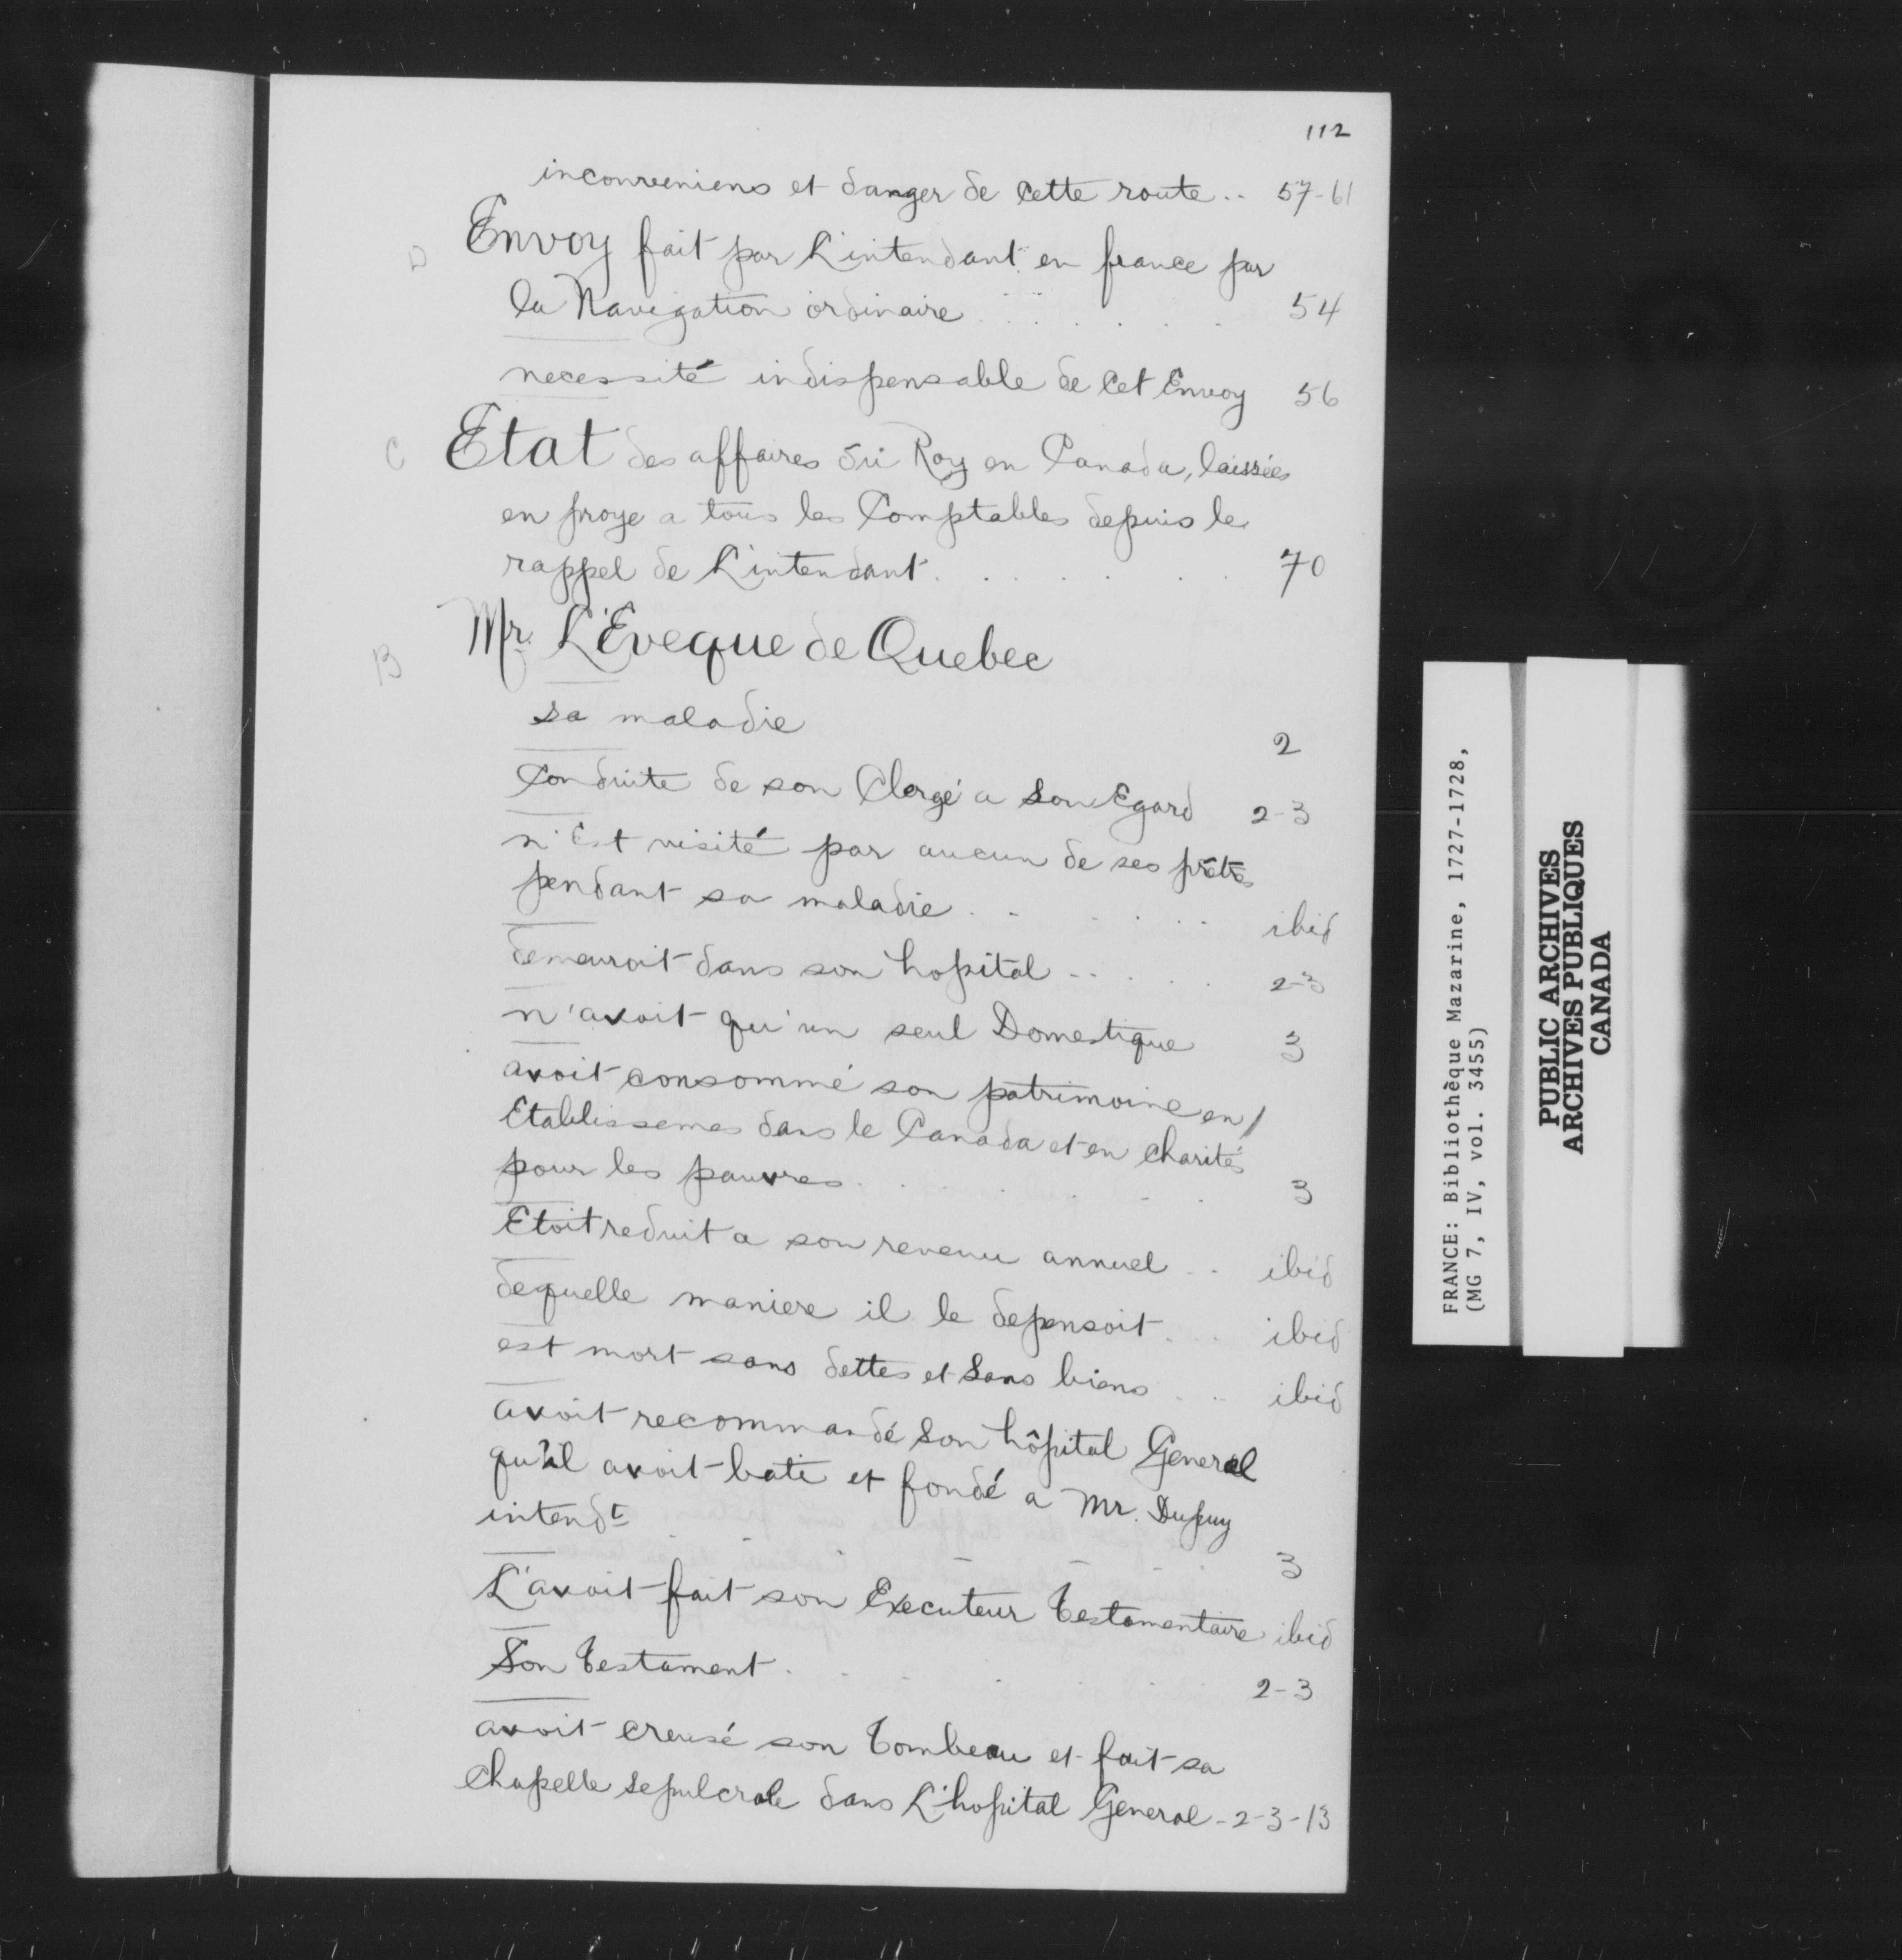 112
inconveniens et danger de Cette route .. 57-61
D Envoy fait par L'intendant en france par
la Navigation ordinaire . . . . . . 54
necessité indispensable de Cet Envoy 56
C Etat des affaires du Roy en Canada, laissées
en proye a tous les Comptables depuis le
rappel de L'intendant . . . . . 70
B Mr. L'Eveque de Quebec
sa maladie 2
Conduite de son Clergé a Son Egard 2-3
n'Est visité par aucun de ses prêtres
pendant sa maladie . . . . . . ibid
demeuroit dans son hopital .. . . . 2-3
n'avoit qu'un seul Domestique 3
avoit consommé son patrimoine en
Etablissemes dans le Canada et en Charités
pour les pauvres . . . . . . 3
Etoit reduit a son revenu annuel .. ibid
dequelle maniere il le depensoit . .. ibid
est mort sans dettes et Sans biens . .. ibid
avoit recommandé Son hôpital General
qu'il avoit bati et fondé a Mr. Dupuy
intendt . . . . . . 3
L'avoit fait son Executeur Testamentaire ibid
Son Testament . . . . . . 2-3
avoit creusé son Tombeau et fait sa
Chapelle sepulcrale dans L'hopital General - 2-3-13
FRANCE: Bibliothèque Mazarine, 1727-1728,
(MG 7, IV, vol. 3455)
PUBLIC ARCHIVES
ARCHIVES PUBLIQUES
CANADA